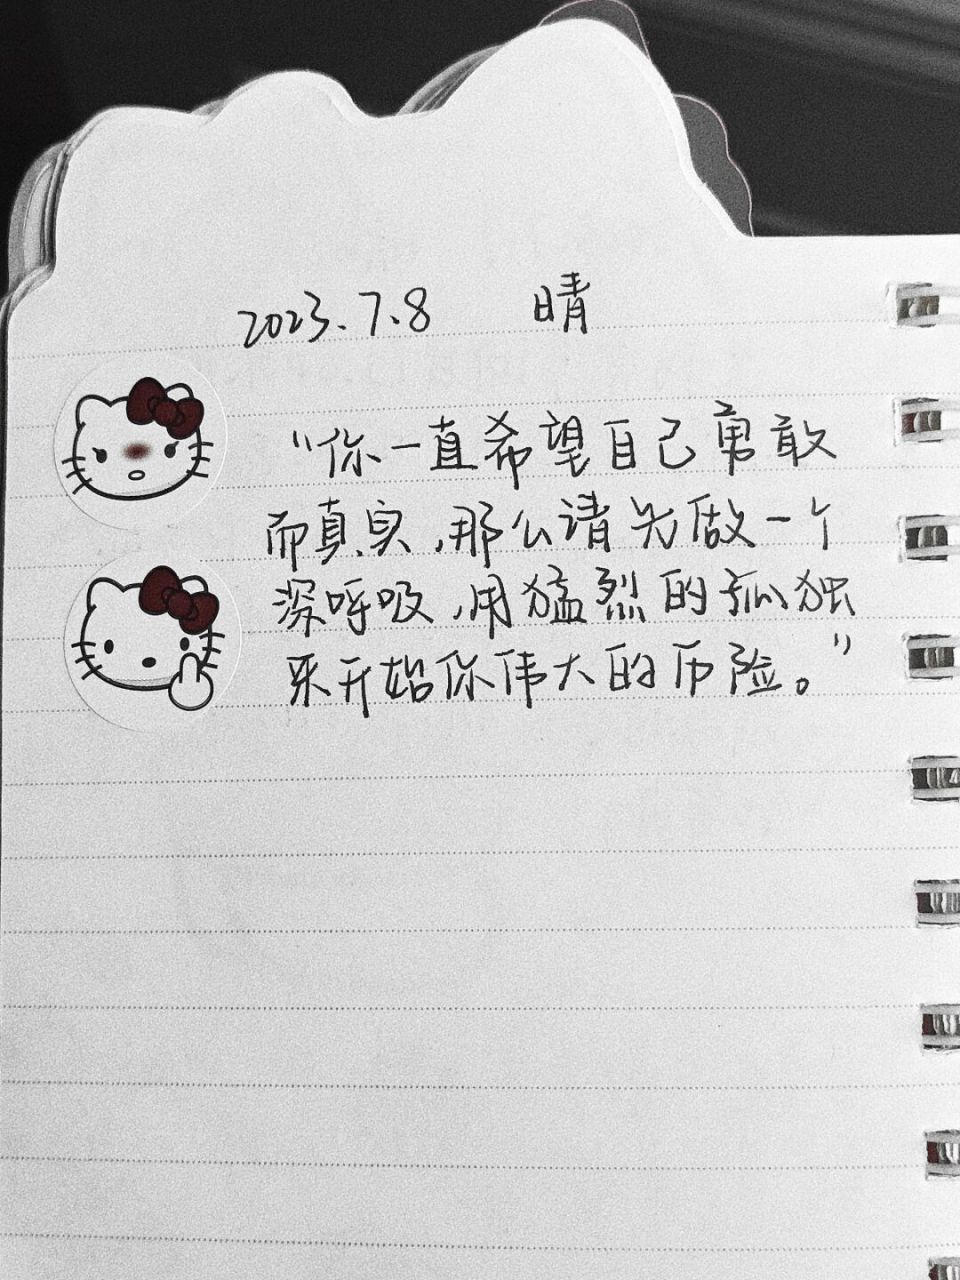 2023.7.8 晴
“你一直希望自己勇敢
而真实,那么请先做一个
深呼吸,用猛烈的孤独
来开始你伟大的历险。”